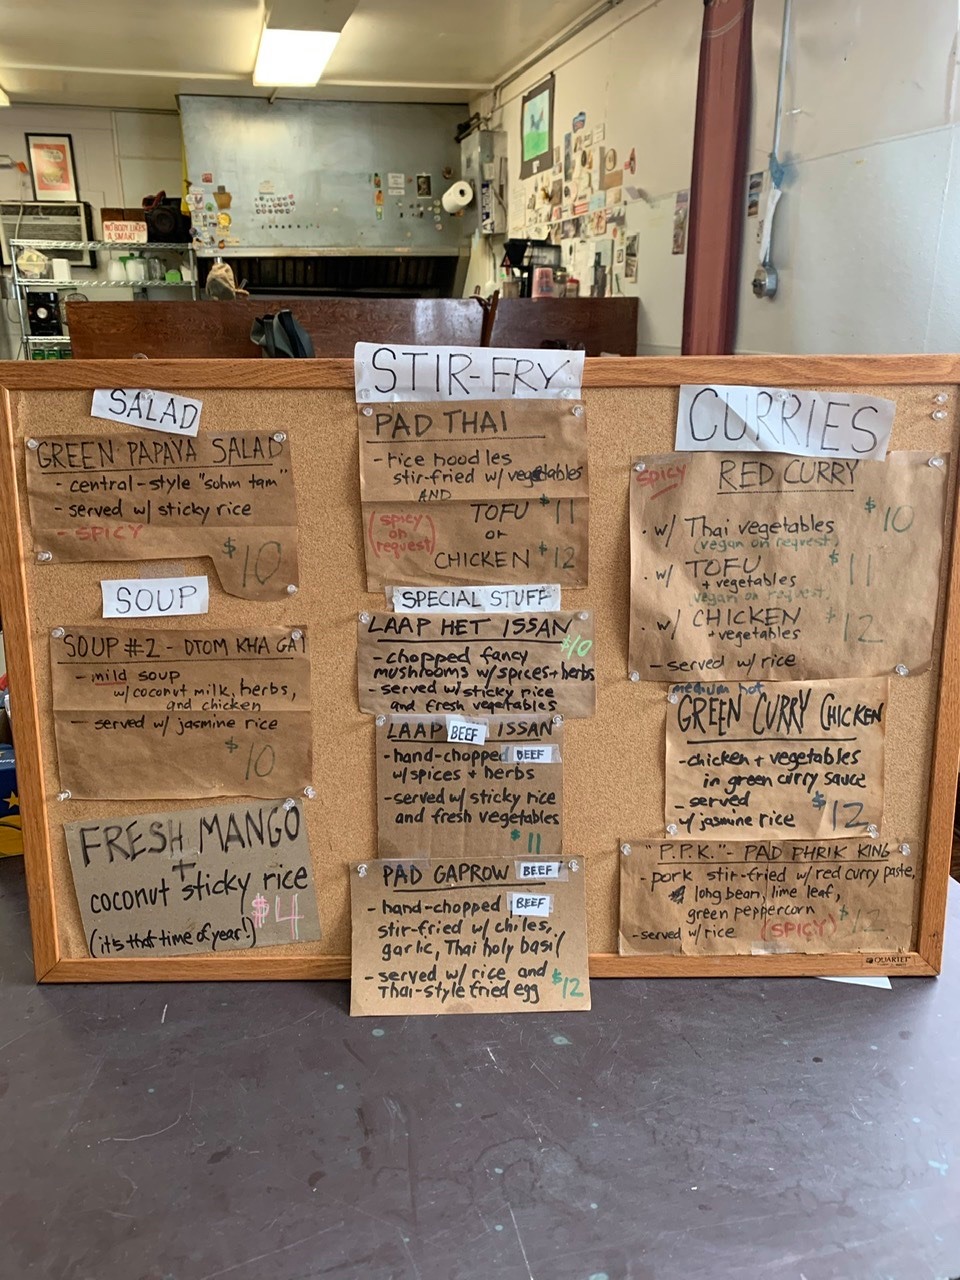 NOBODY LIKES
A SMART
SALAD
GREEN PAPAYA SALAD
- central-style "sohm tam"
- served w/ sticky rice
- SPICY
$10
SOUP
SOUP #2 - DTOM KHA GAI
- mild soup
w/coconut milk, herbs,
and chicken
- served w/ jasmine rice
$10
FRESH MANGO
+
coconut sticky rice
$4
(it's that time of year!)
STIR-FRY
PAD THAI
- rice noodles
stir-fried w/ vegetables
AND
TOFU $11
(spicy on request)
or
CHICKEN $12
SPECIAL STUFF
LAAP HET ISSAN
$10
- chopped fancy
mushrooms w/spices+herbs
- served w/sticky rice
and fresh vegetables
LAAP BEEF ISSAN
- hand-chopped BEEF
w/spices + herbs
- served w/ sticky rice
and fresh vegetables
$11
PAD GAPROW BEEF
- hand-chopped BEEF
stir-fried w/ chiles,
garlic, Thai holy basil
- served w/ rice and
Thai-style fried egg $12
CURRIES
SPICY RED CURRY
$10
. w/ Thai vegetables
(vegan on request)
. w/ TOFU $11
+ vegetables
(vegan on request)
. w/ CHICKEN $12
+ vegetables
- served w/ rice
medium hot
GREEN CURRY CHICKEN
- chicken + vegetables
in green curry sauce
- served
w/ jasmine rice $12
"P.P.K." - PAD PHRIK KING
- pork stir-fried w/ red curry paste,
long bean, lime leaf,
green peppercorn $12
- served w/ rice (SPICY)
QUARTET